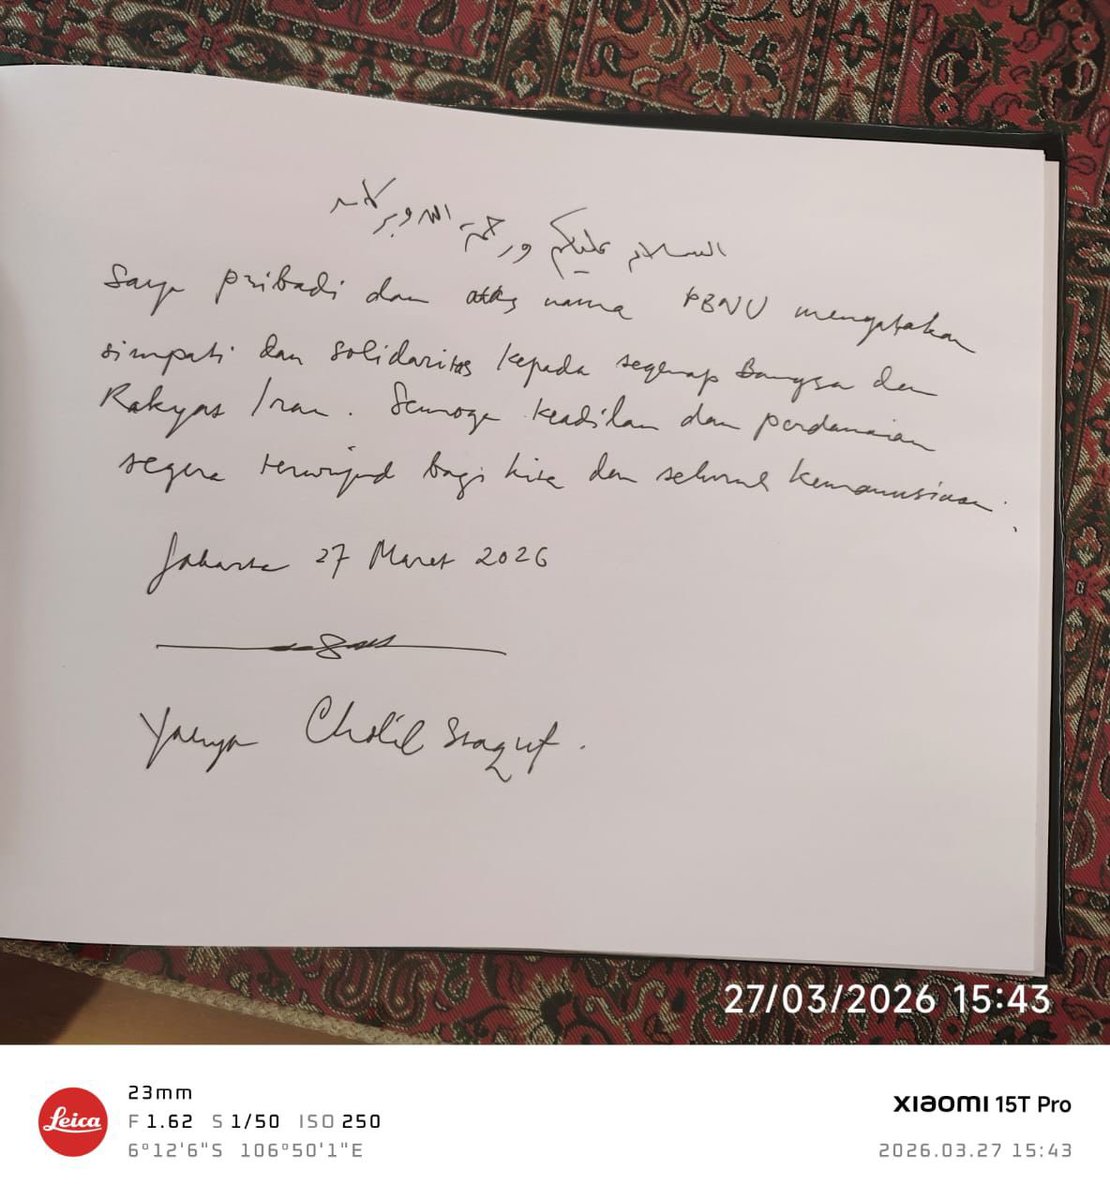 السلام عليكم ورحمة الله وبركاته
Saya pribadi dan atas nama PBNU mengatakan
simpati dan solidaritas kepada segenap Bangsa dan
Rakyat Iran. Semoga keadilan dan perdamaian
segera terwujud bagi kita dan seluruh kemanusiaan.
Jakarta 27 Maret 2026
Yahya Cholil Staquf.
27/03/2026 15:43
Leica
23mm
F 1.62 S 1/50 ISO 250
6°12'6"S 106°50'1"E
XIAOMI 15T Pro
2026.03.27 15:43